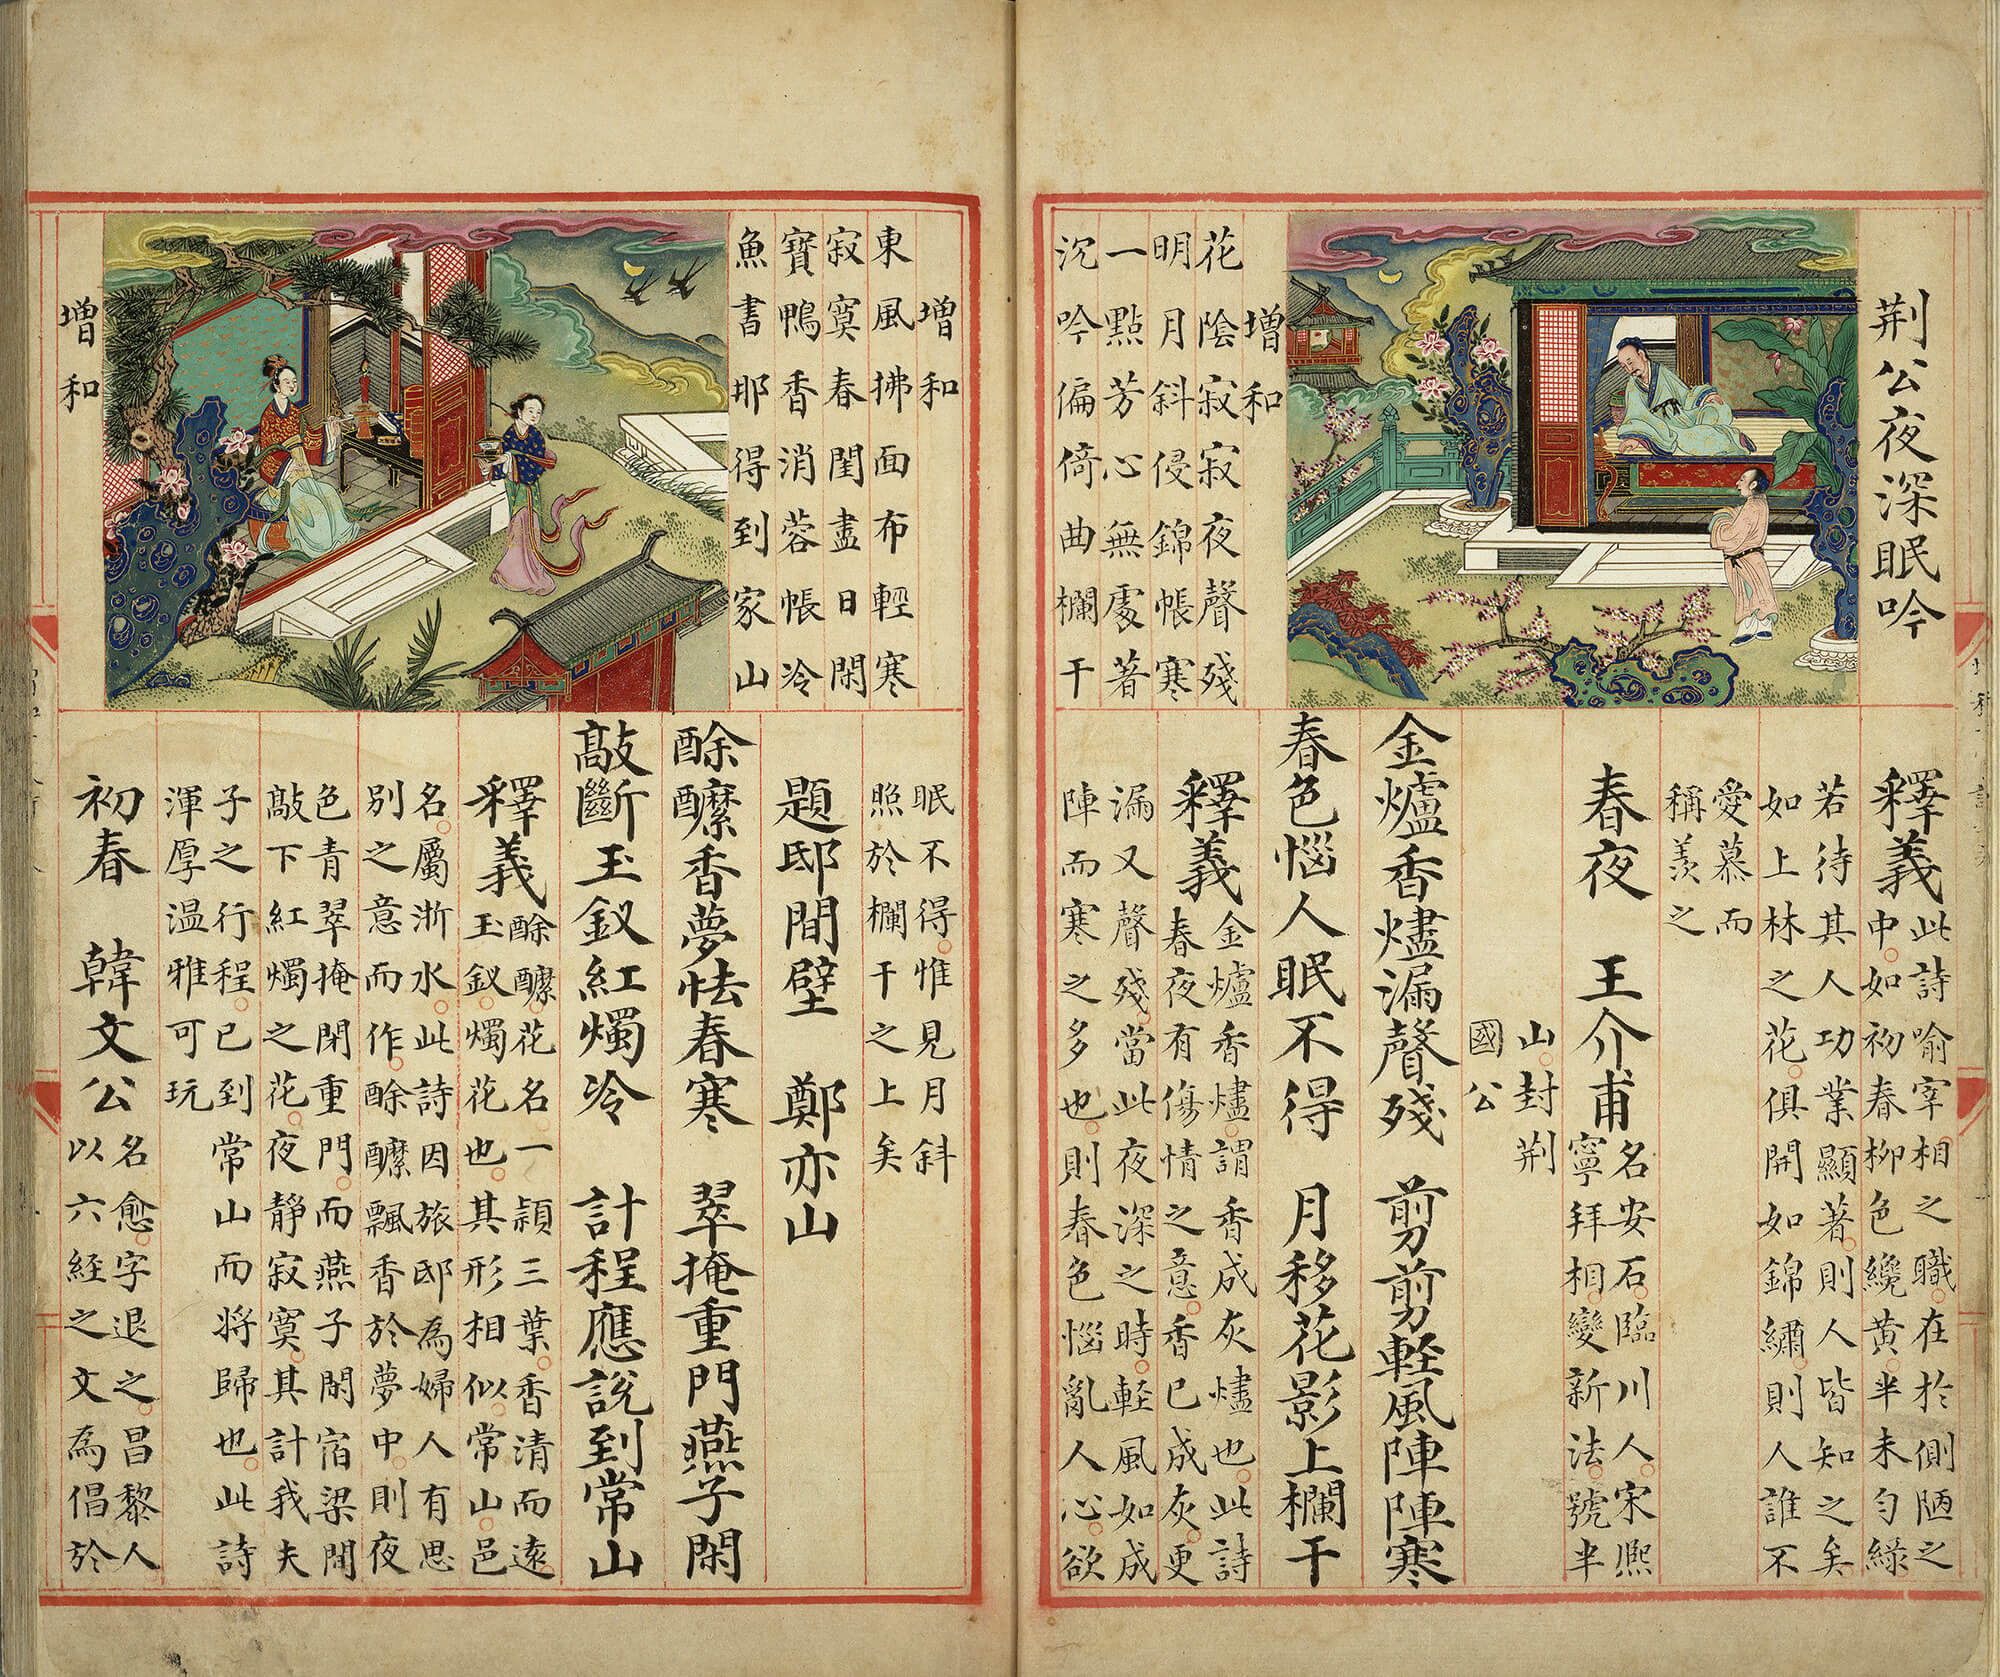 荆公夜深眠吟
增和
花陰寂寂夜聲殘
明月斜侵錦帳寒
一點芳心無處著
沉吟偏倚曲欄干
釋義
此詩喻宰相之職在於側陋之
中如初春柳色纔黄半未匀緑
若待其人功業顯著則人皆知之矣
如上林之花俱開如錦繡則人誰不
愛慕而
稱羨之
春夜 王介甫
名安石臨川人宋熈
寧拜相變新法號半
山封荆
國公
金爐香燼漏聲殘 剪剪軽風陣陣寒
春色惱人眠不得 月移花影上欄干
釋義
金爐香燼謂香成灰燼也此詩
春夜有傷情之意香已成灰更
漏又聲殘當此夜深之時軽風如成
陣而寒之多也則春色惱亂人心欲
增和
東風拂面布輕寒
寂寞春閨盡日閑
寳鴨香消蓉帳冷
魚書那得到家山
增和
眠不得惟見月斜
照於欄干之上矣
題邸間壁 鄭亦山
酴醿香夢怯春寒 翠掩重門燕子閑
敲斷玉釵紅燭冷 計程應說到常山
釋義
酴醿花名一頴三葉香清而遠
玉釵燭花也其形相似常山邑
名屬浙水此詩因旅邸為婦人有思
別之意而作酴醿飄香於夢中則夜
色青翠掩閉重門而燕子閑宿梁間
敲下紅燭之花夜静寂寞其計我夫
子之行程已到常山而将歸也此詩
渾厚温雅可玩
初春 韓文公
名愈字退之昌黎人
以六経之文為倡於